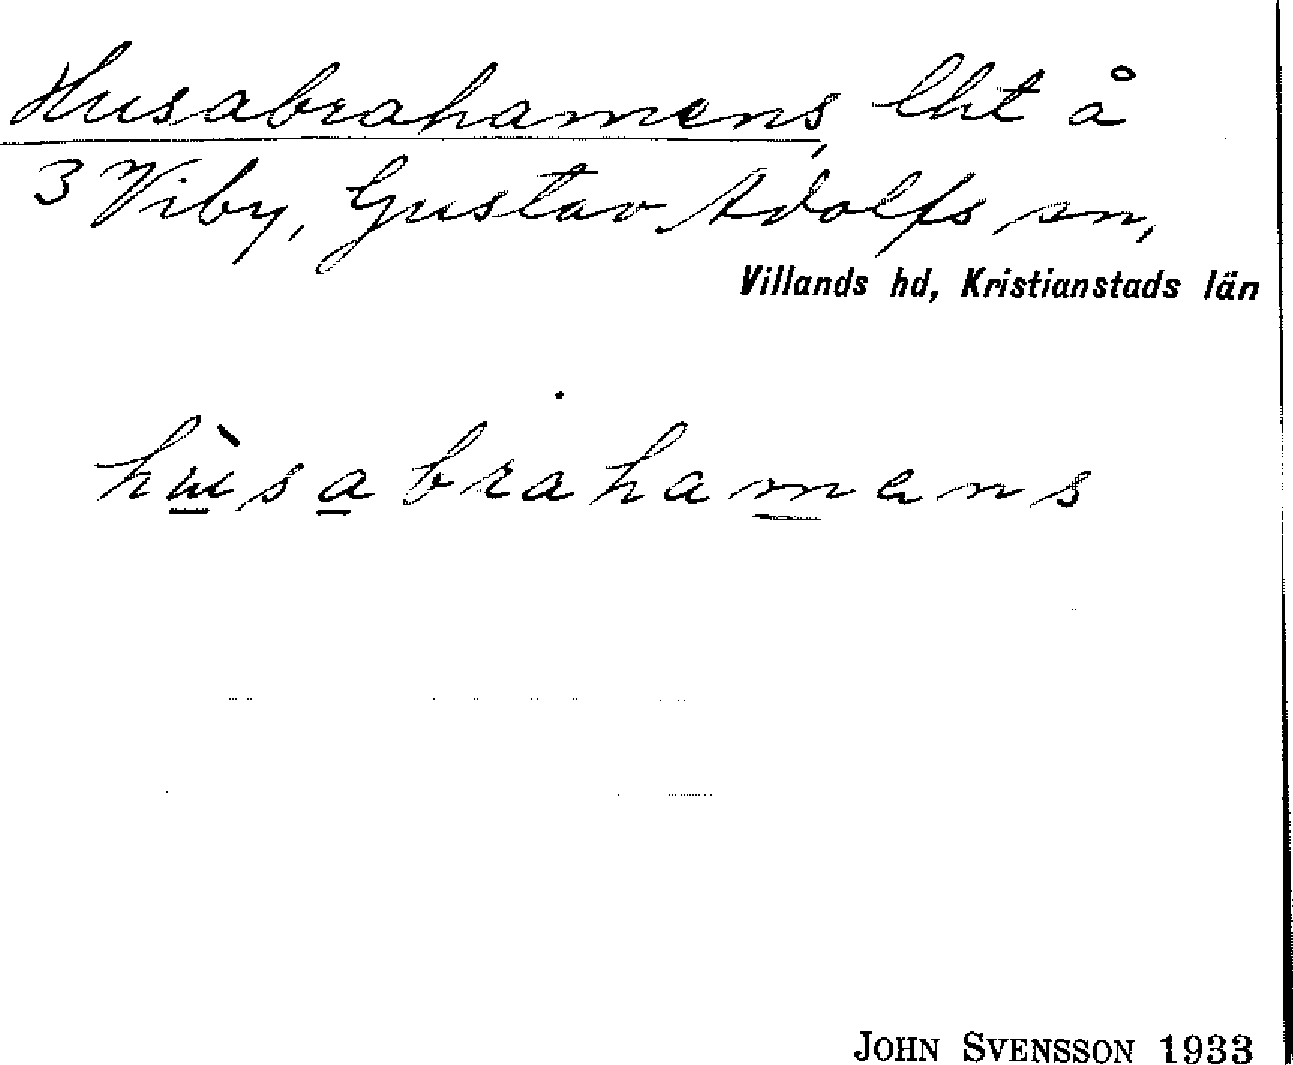 Husabrahamens, lht å
3 Viby, Gustav Adolfs sn,
Villands hd, Kristianstads län
hùsabrahamens
JOHN SVENSSON 1933